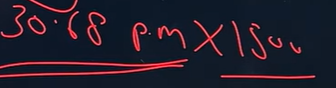 30.68 p.m X 1500